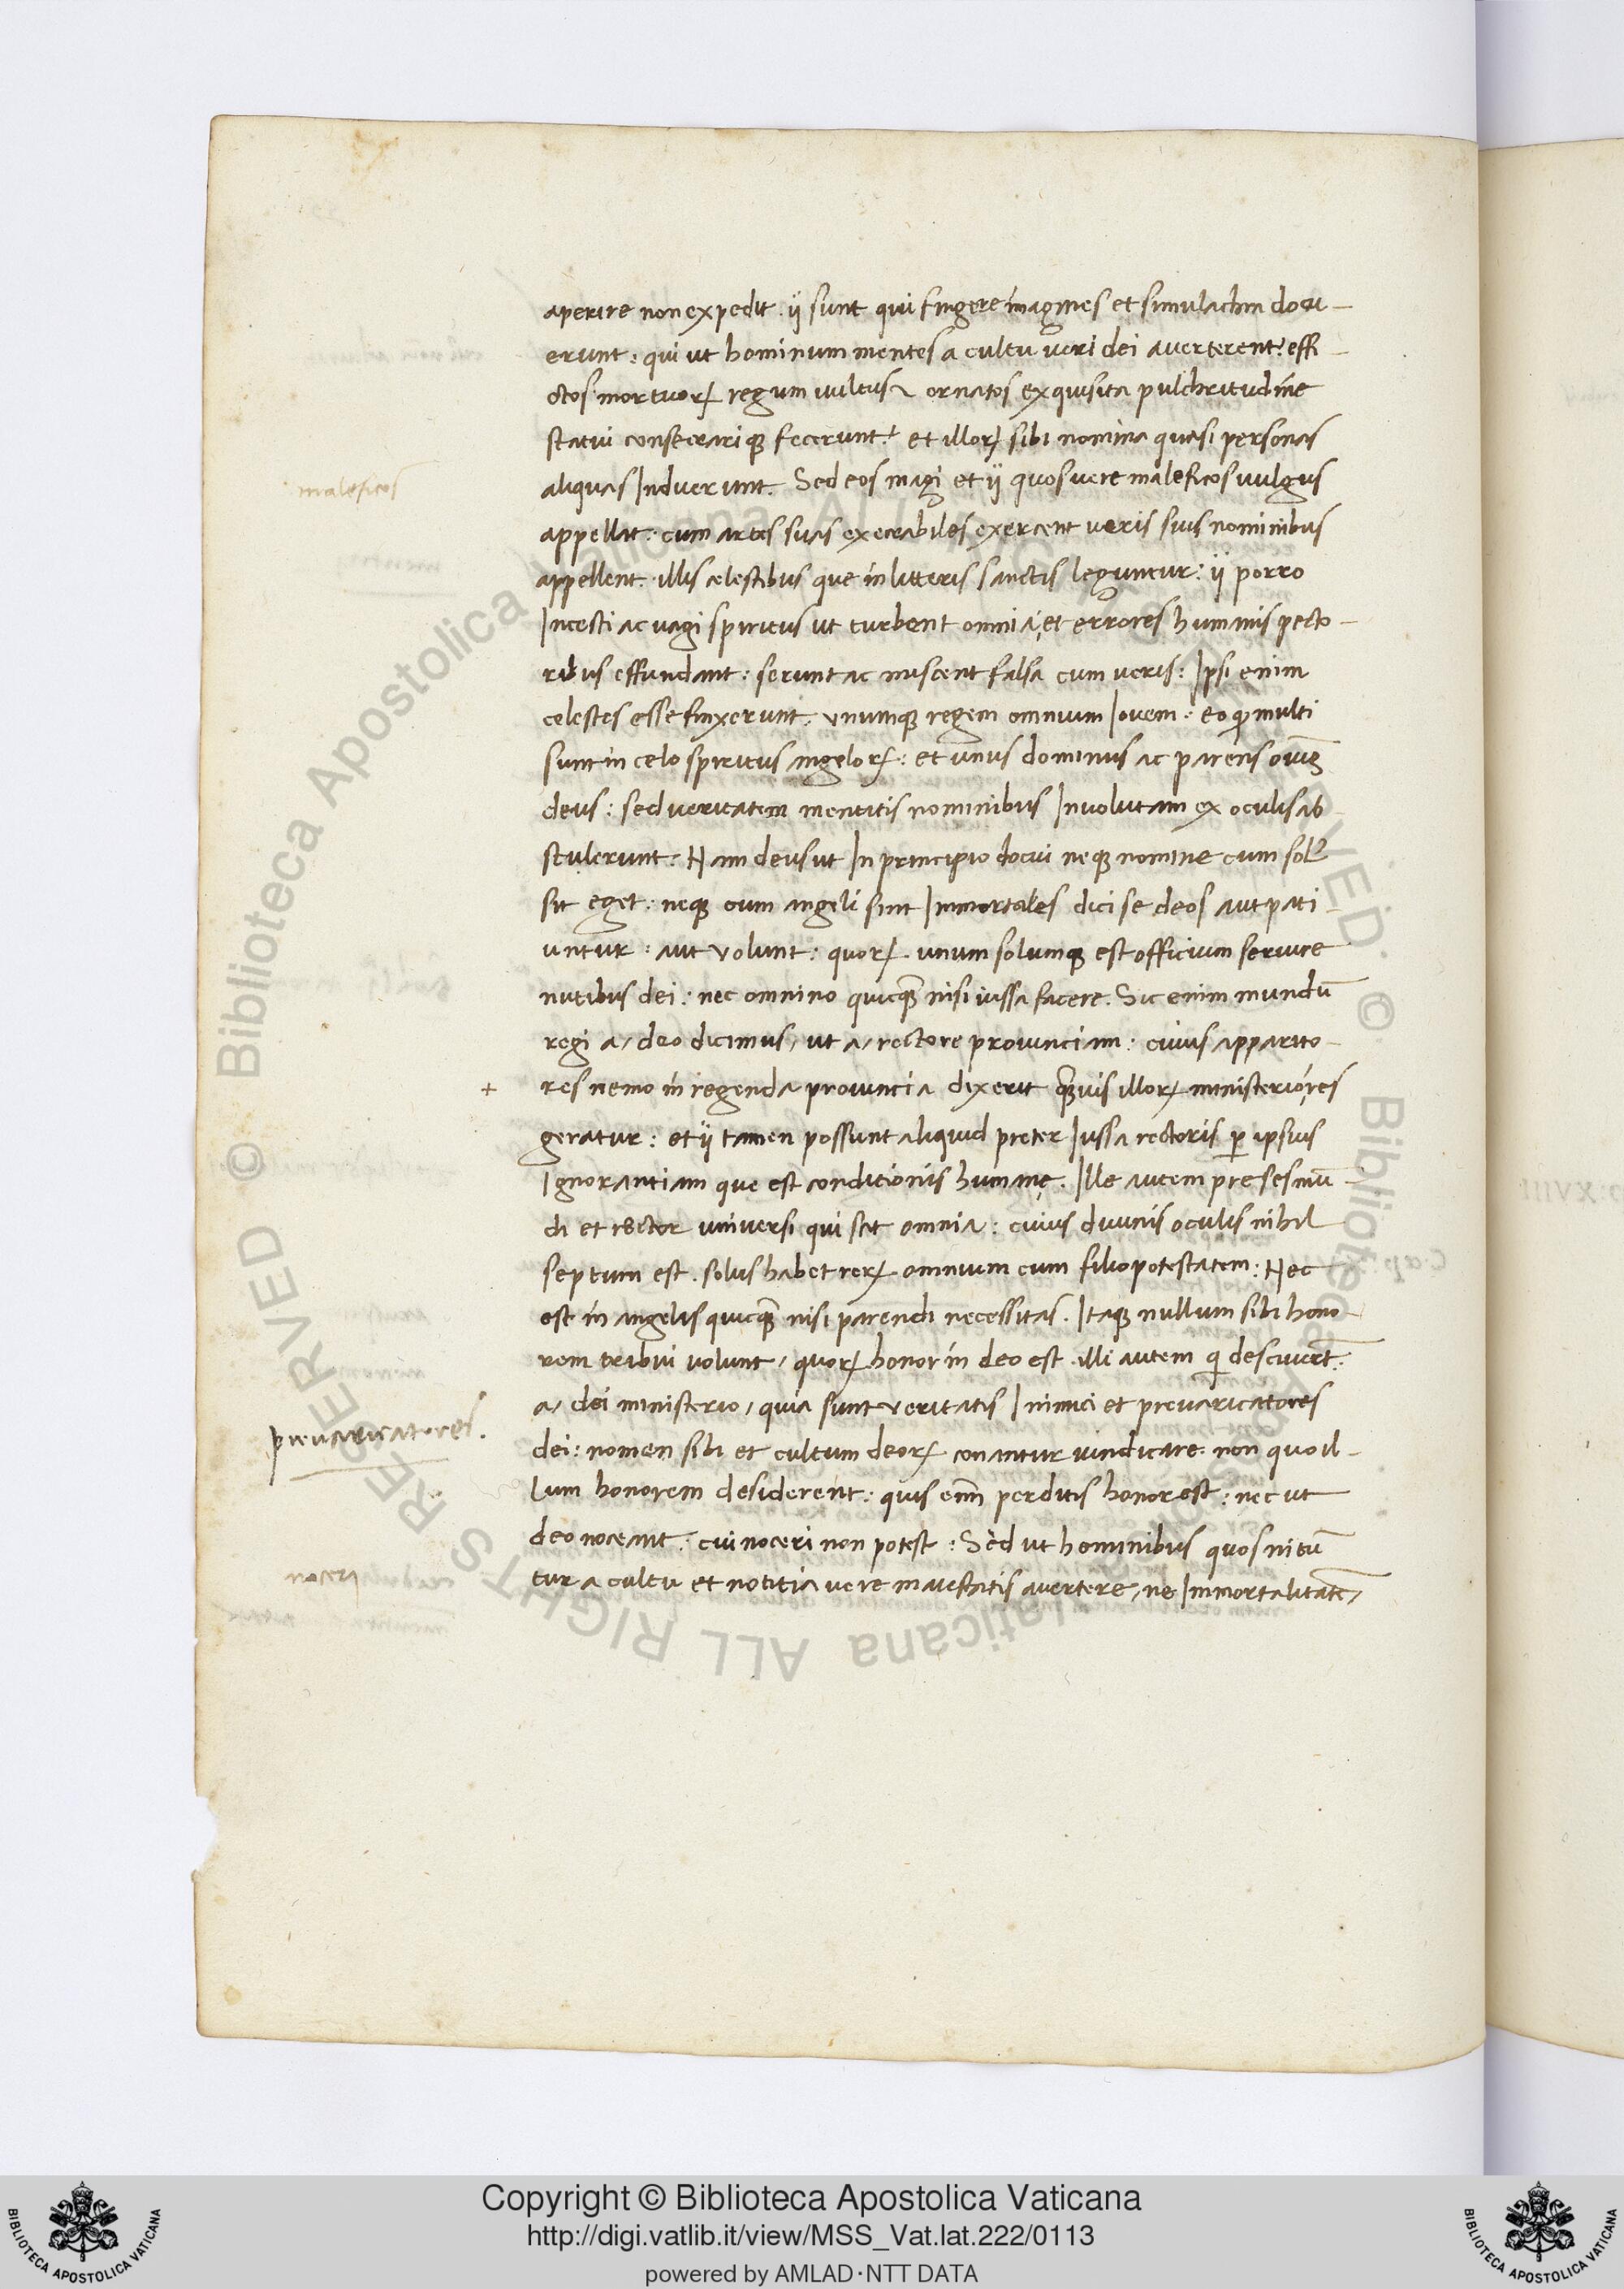 aperire non expedit. ij sunt qui fingere imagines et simulachra docu-
erunt: qui ut hominum mentes a cultu veri dei averterent: effi-
ctos mortuoꝝ regum vultus & ornatos exquisita pulchritudine
statui consecrariqꝫ fecerunt: et illoꝝ sibi nomina quasi personas
maleficos
aliquas Induerunt. Sed eos magi et ij quos vere maleficos vulgus
appellat: cum artes suas execrabiles exercent veris suis nominibus
appellent. illis celestibus que in litteris sanctis leguntur: ij porro
Incesti ac vagi spiritus ut turbent omnia, et errores humanis pecto-
ribus effundant: serunt ac miscent falsa cum veris: Ipsi enim
celestes esse finxerunt. unumqꝫ regem omnium Iovem: eo ꝙ multi
sunt in celo spiritus angeloꝝ: et unus dominus ac parens oīuꝫ
deus: sed veritatem mentitis nominibus Involutam ex oculis ab
stulerunt. Nam deus ut In principio docui neqꝫ nomine cum solꝰ
sit eget: neqꝫ cum angeli sint Immortales dici se deos aut pati-
untur: aut volunt: quoꝝ. unum solumqꝫ est officium servire
nutibus dei: nec omnino quicqꝫ̄ nisi iussa facere. Sic enim mundū
regi a/ deo dicimus, ut a/ rectore provinciam: cuius apparito-
+ res nemo in regenda provincia dixerit qꝫ̄vis illoꝝ ministerio, res
geratur: et ij tamen possunt aliquid preter Iussa rectoris ꝑ ipsius
Ignorantiam que est conditionis humane. Ille autem preses mū-
di et rector universi qui scit omnia: cuius divinis oculis nihil
septum est. solus habet reꝝ omnium cum filio potestatem: Nec
est in angelis quicqꝫ̄ nisi parendi necessitas. Itaqꝫ nullum sibi hono-
rem tribui volunt, quoꝝ honor in deo est. illi autem q̇ desciver̄t.
a/ dei ministerio, quia sunt veritatis Inimici et prevaricatores
prevaricatores.
dei: nomen sibi et cultum deoꝝ conantur vindicare. non quo il-
lum honorem desiderent: quis enī perditis honor est: nec ut
deo noceant: cui noceri non potest: Sed ut hominibus quos nitū
noceri
tur a cultu et notitia vere maiestatis avertere, ne Immortalitatē,
Copyright © Biblioteca Apostolica Vaticana
http://digi.vatlib.it/view/MSS_Vat.lat.222/0113
powered by AMLAD·NTT DATA
BIBLIOTECA APOSTOLICA VATICANA
BIBLIOTECA APOSTOLICA VATICANA
© Biblioteca Apostolica Vaticana ALL RIGHTS RESERVED © Biblioteca Apostolica Vaticana ALL RIGHTS RESERVED